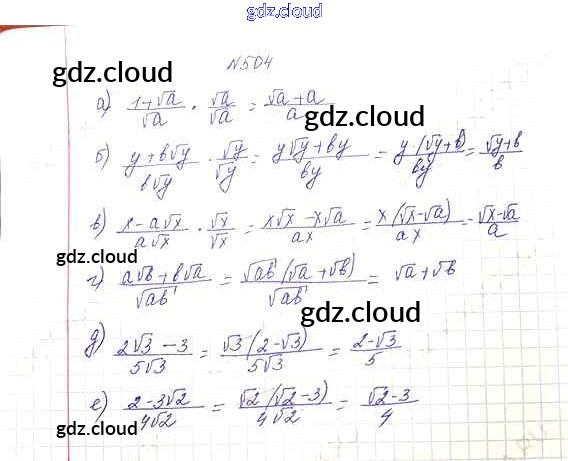 gdz.cloud
№504
gdz.cloud
а) (1+√a)/√a · √a/√a = (√a+a)/a
gdz.cloud
б) (y+b√y)/(b√y) · √y/√y = (y√y+by)/(by) = (y(√y+b))/(by) = (√y+b)/b
в) (x-a√x)/(a√x) · √x/√x = (x√x-x√a)/(ax) = (x(√x-√a))/(ax) = (√x-√a)/a
gdz.cloud
г) (a√b+b√a)/√ab = (√ab(√a+√b))/√ab = √a+√b
gdz.cloud
д) (2√3-3)/(5√3) = (√3(2-√3))/(5√3) = (2-√3)/5
е) (2-3√2)/(4√2) = (√2(√2-3))/(4√2) = (√2-3)/4
gdz.cloud
gdz.cloud